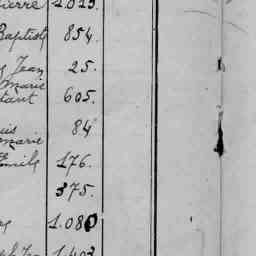 Pierre 1.013.
Baptiste 854.
Jean 25.
Marie
tant 605.
uis 84
marie
Emile 176.
375.
1.080
1.403